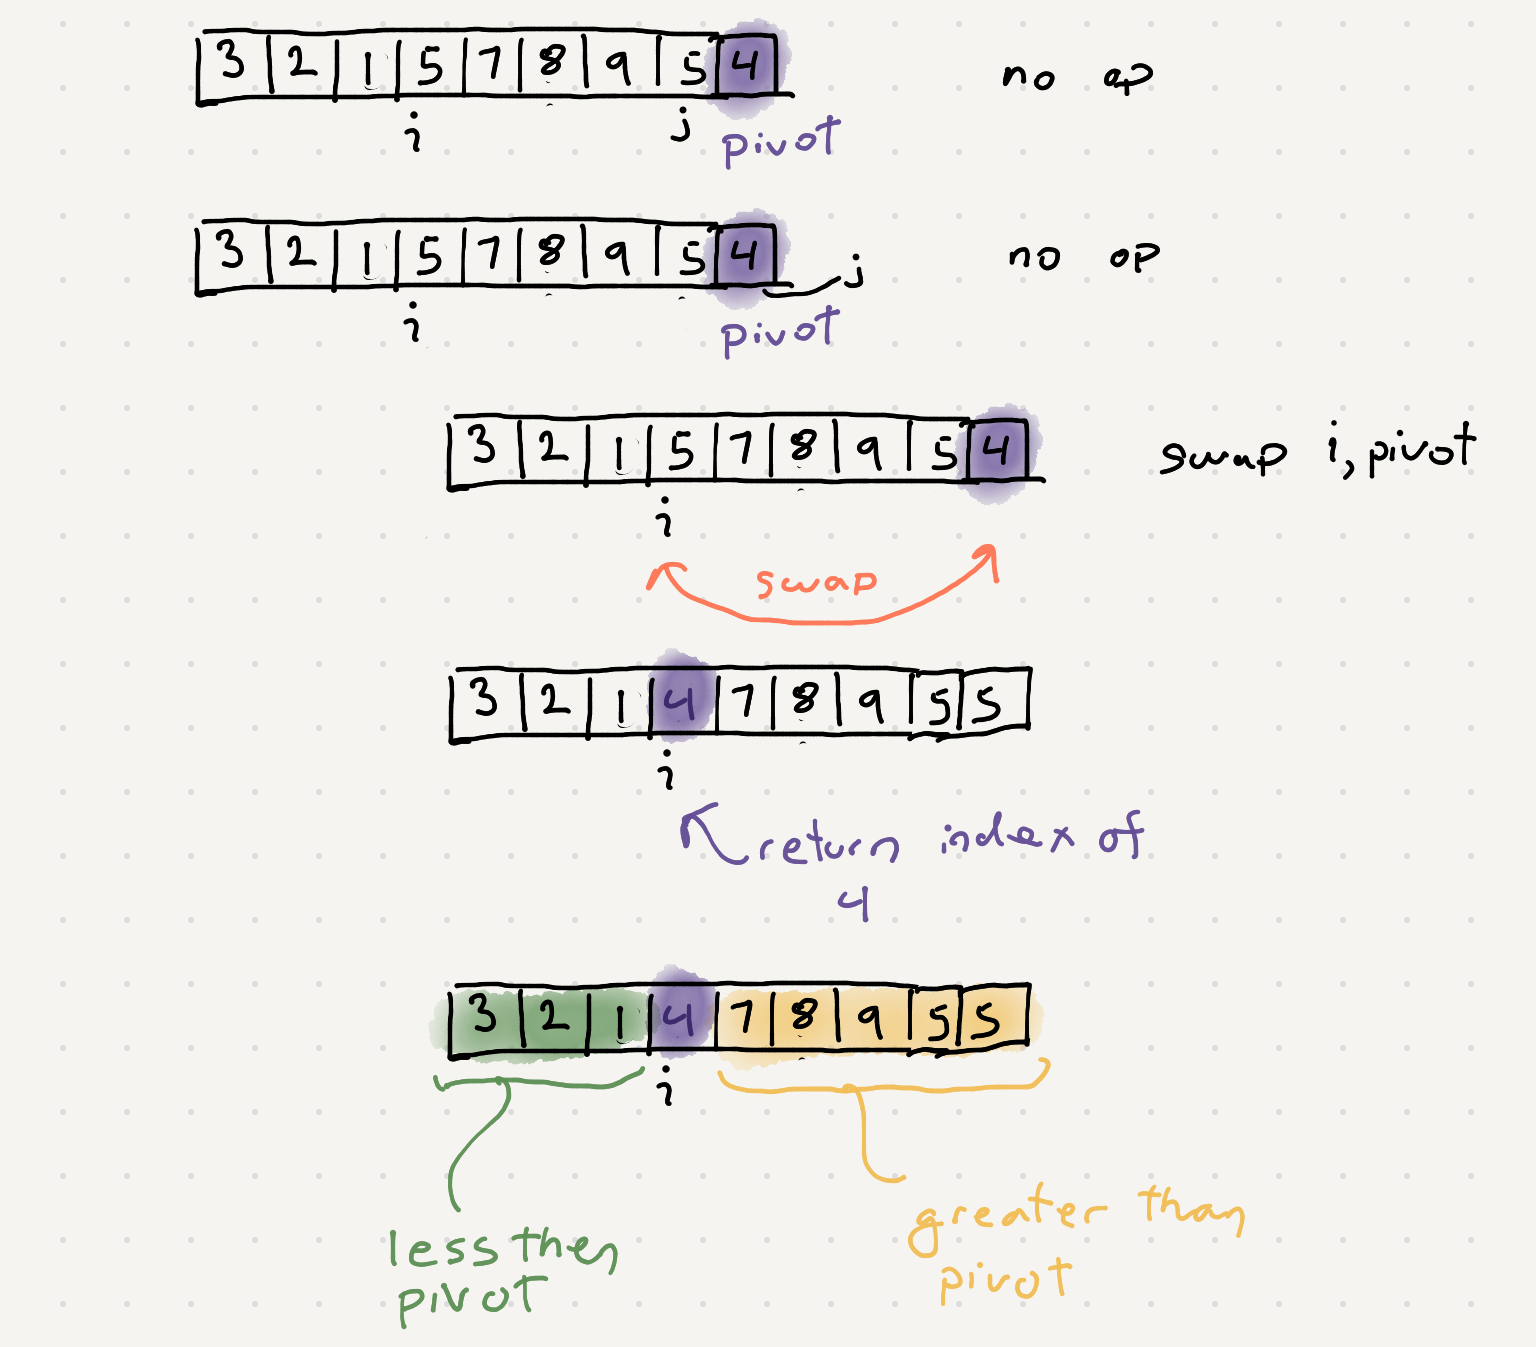 3 2 1 5 7 8 9 5 4 no op
i j pivot
3 2 1 5 7 8 9 5 4 j no op
i pivot
3 2 1 5 7 8 9 5 4 swap i, pivot
i
swap
3 2 1 4 7 8 9 5 5
i
return index of
4
3 2 1 4 7 8 9 5 5
i
less then
pivot
greater than
pivot